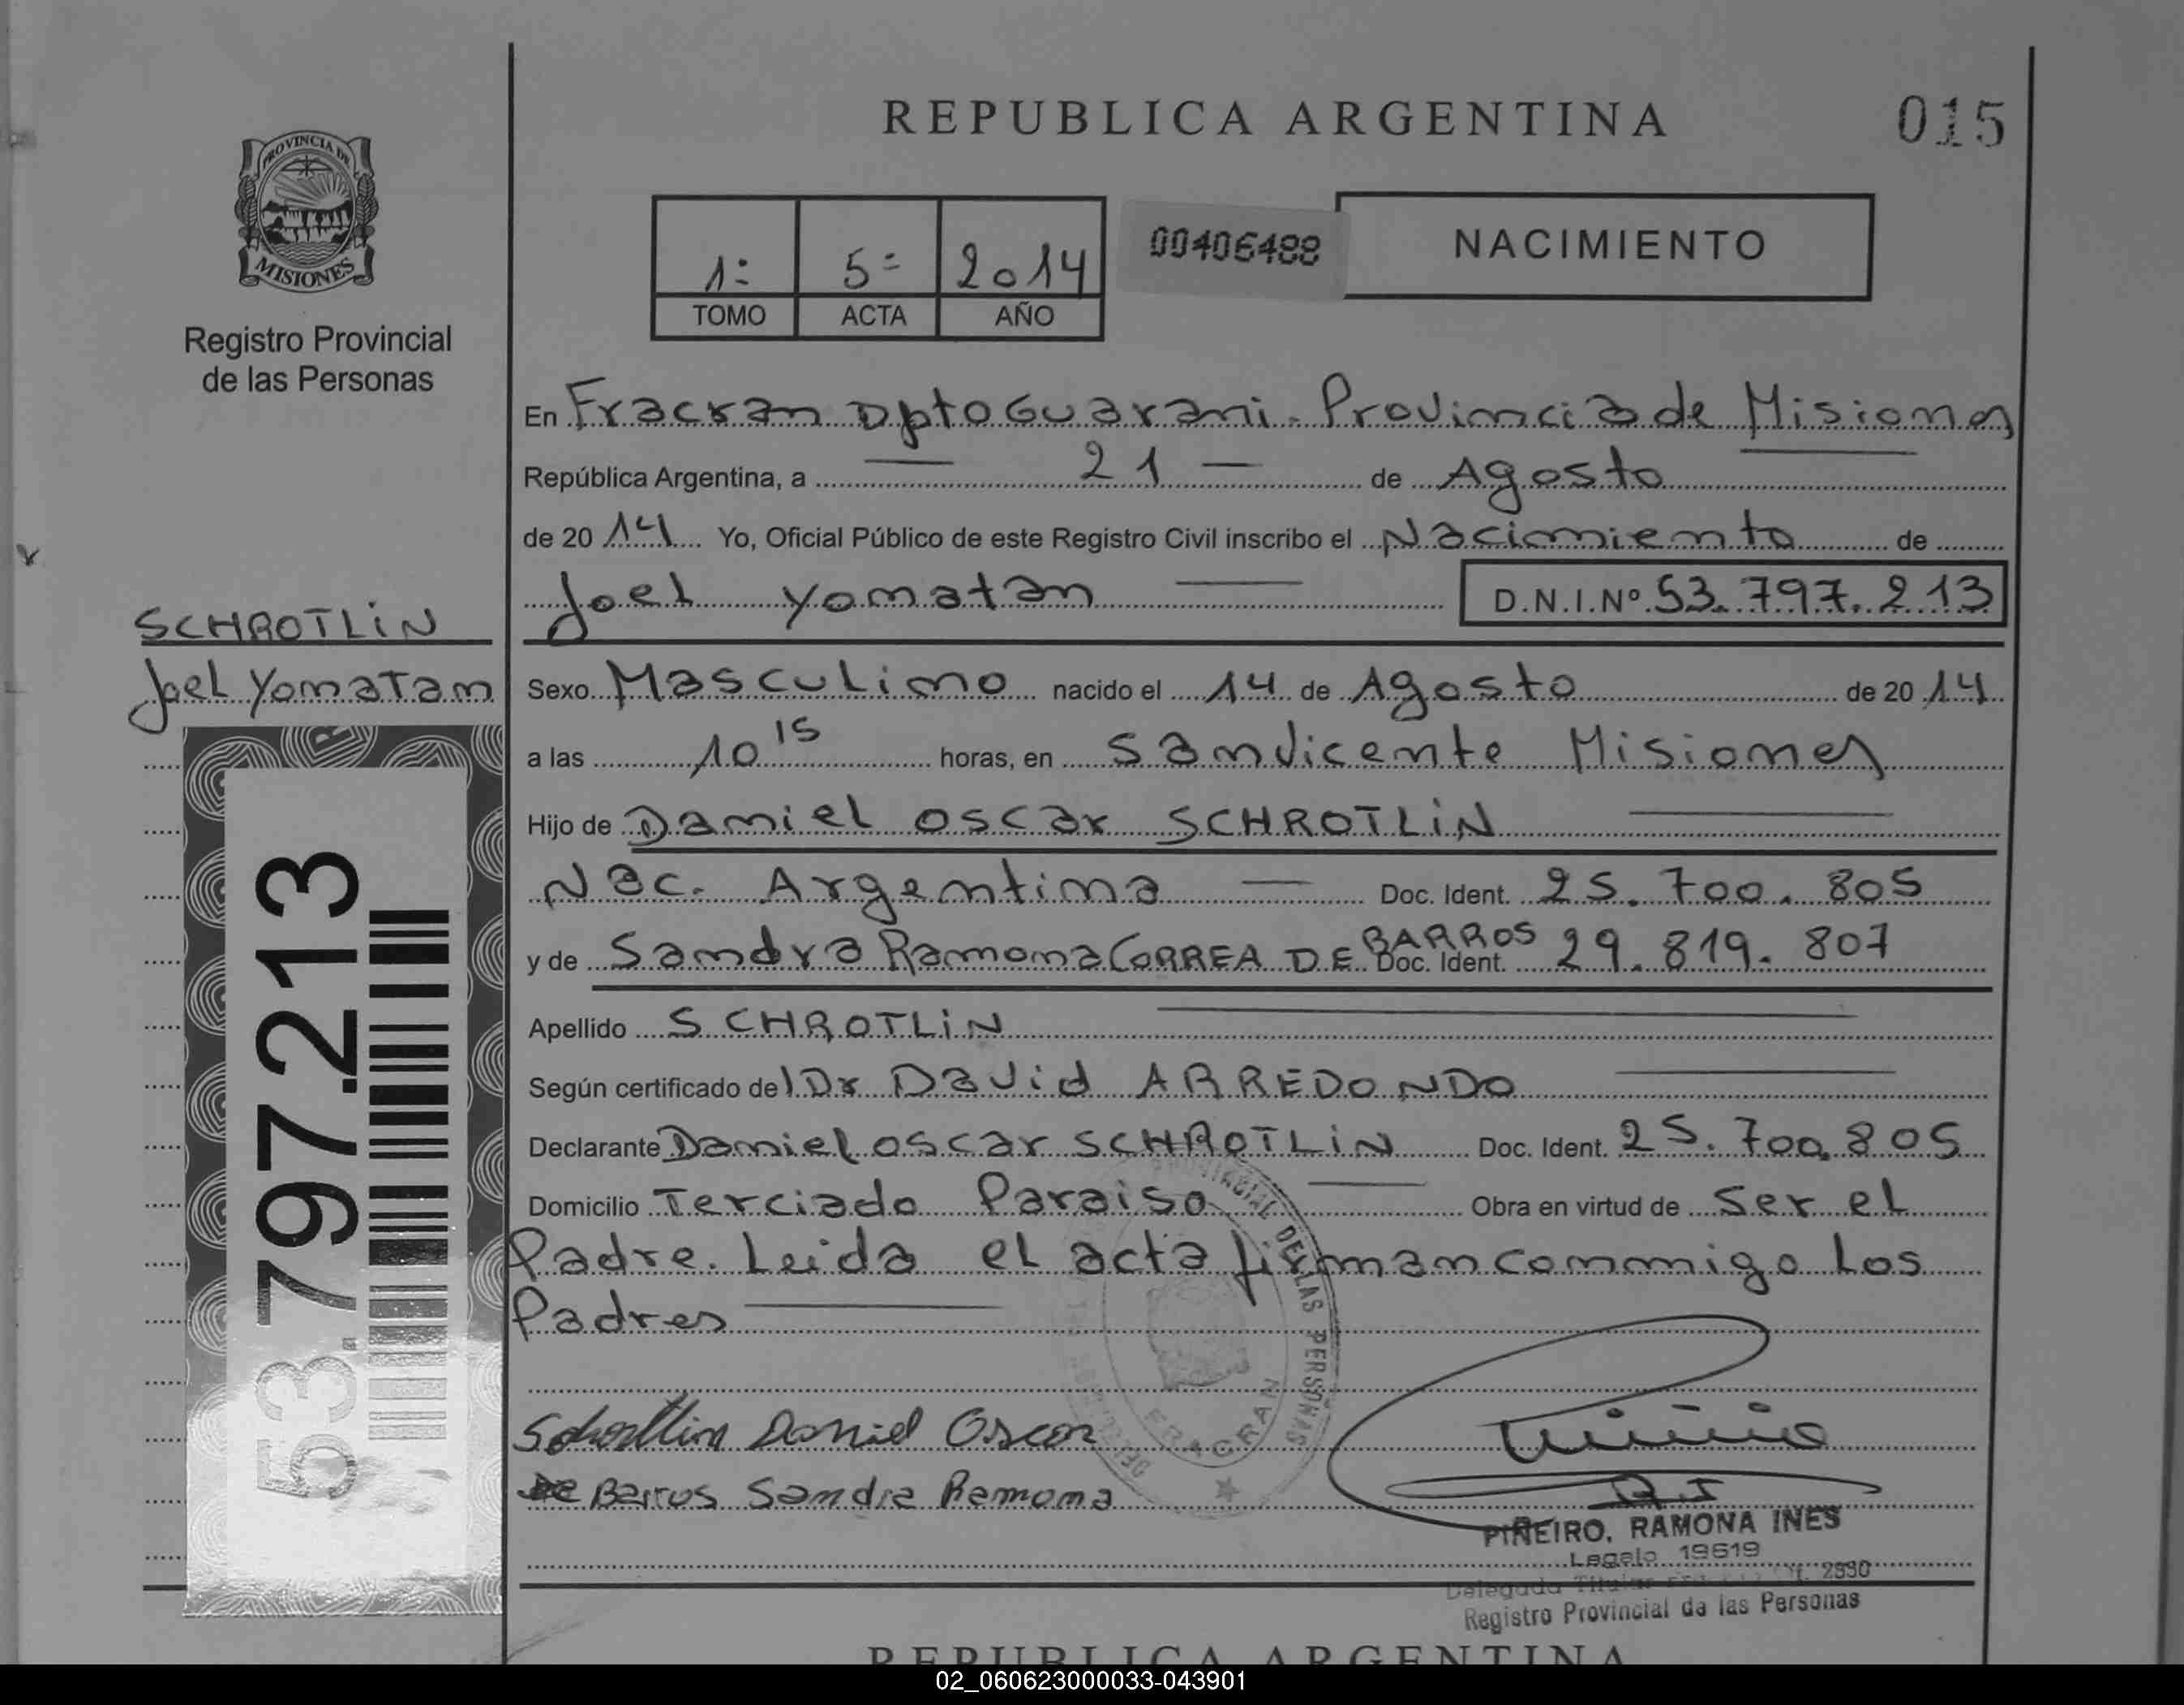 REPUBLICA ARGENTINA
015
PROVINCIA DE
MISIONES
Registro Provincial
de las Personas
1: 5= 2014
TOMO ACTA AÑO
00406488
NACIMIENTO
En Fracran Dpto Guarani - Provincia de Misiones
República Argentina, a 21 de Agosto
de 2014 Yo, Oficial Público de este Registro Civil inscribo el Nacimiento de
Joel Yomatan D.N.I.Nº 53.797.213
SCHROTLiN
Joel Yomatan
Sexo Masculino nacido el 14 de Agosto de 2014
a las 10 15 horas, en San Vicente Misiones
Hijo de Daniel Oscar SCHROTLiN
Nac. Argentina Doc. Ident. 25.700.805
y de Sandra Ramona CORREA DE BARROS Doc. Ident. 29.819.807
Apellido SCHROTLiN
Según certificado del Dr David ARREDONDO
Declarante Daniel Oscar SCHROTLiN Doc. Ident. 25.700.805
Domicilio Terciado Paraiso Obra en virtud de Ser el
Padre. Leida el acta firman conmigo Los
Padres
53.797.213
DE LAS PERSONAS
FRACRAN
Schrotlin Daniel Oscar
De Barros Sandra Ramona
PIÑEIRO, RAMONA INES
Legajo 19619
Delegada Titular 2990
Registro Provincial de las Personas
REPUBLICA ARGENTINA
02_060623000033-043901